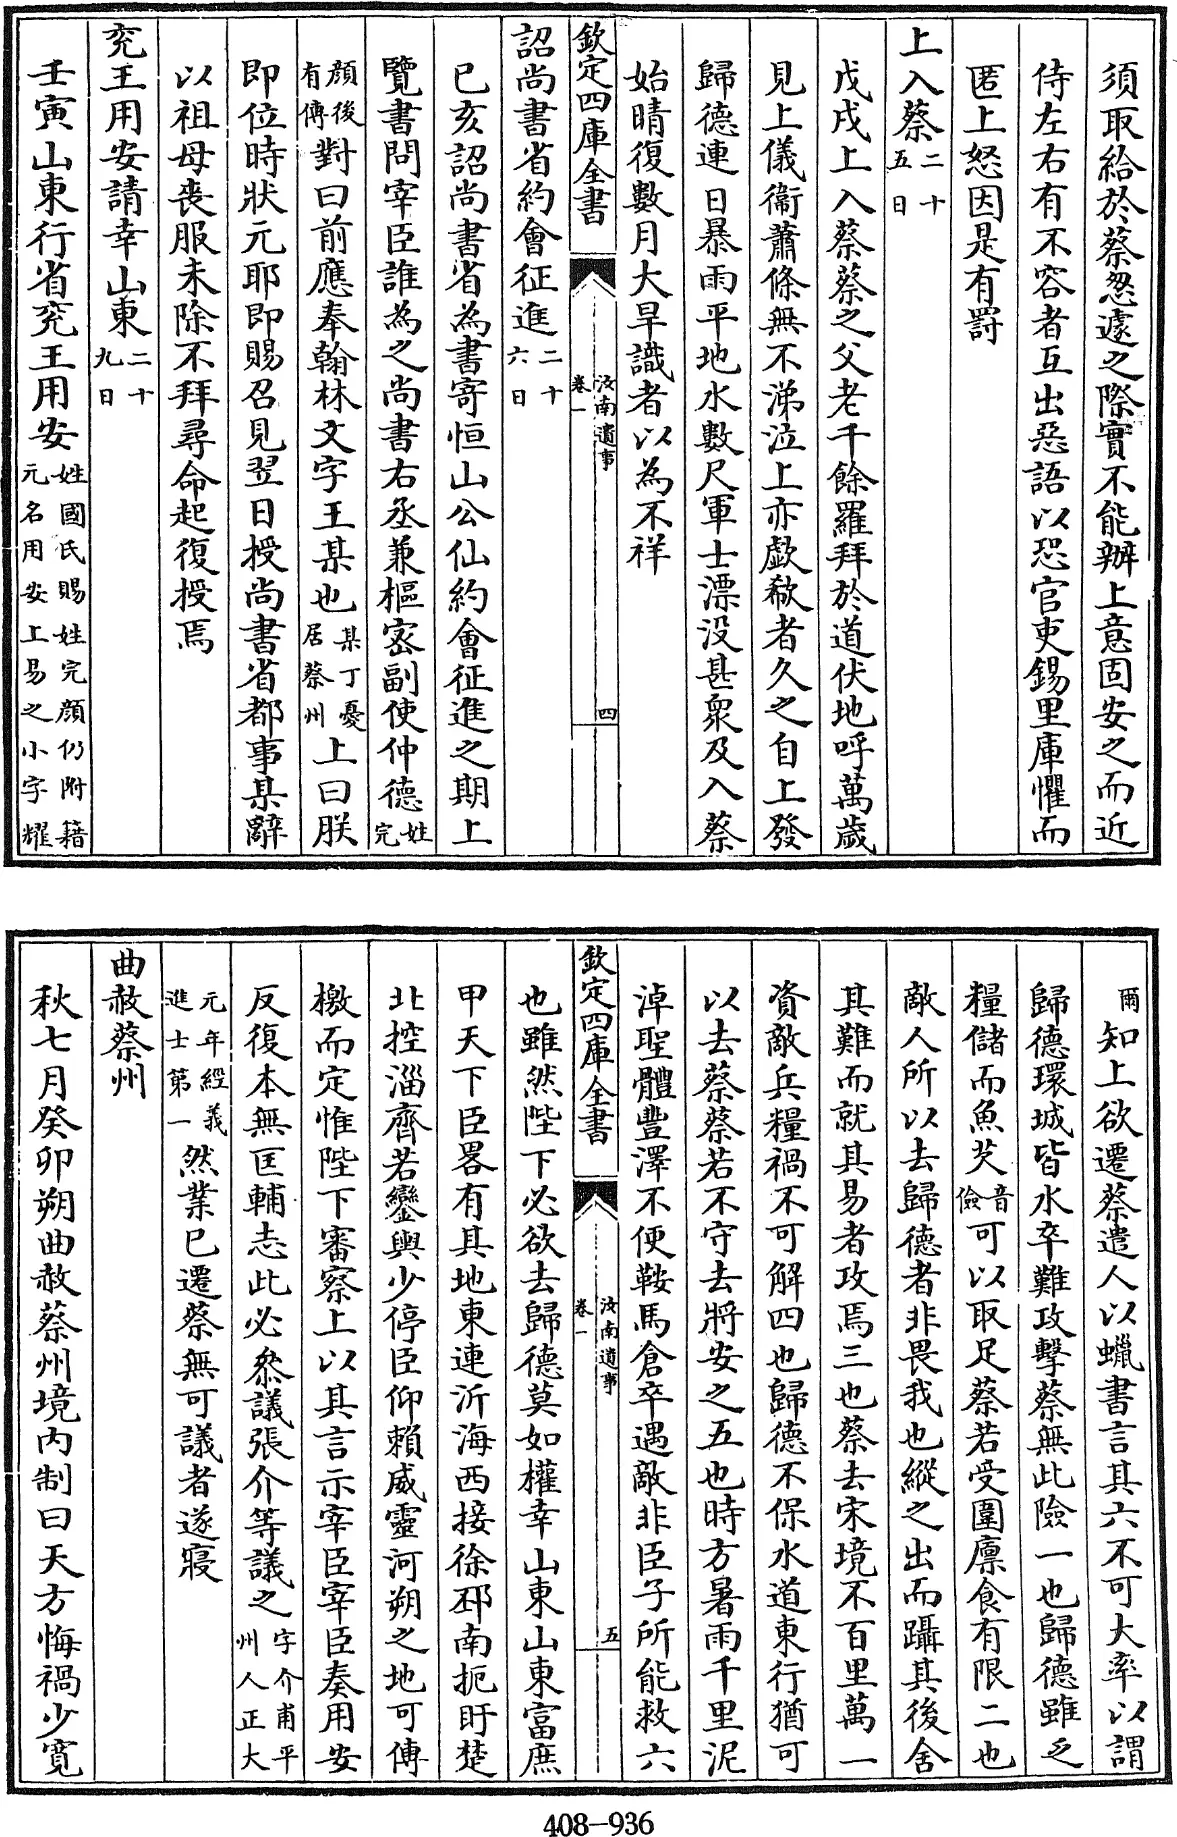 須取給於蔡怱遽之際實不能辦上意固安之而近
侍左右有不容者互出惡語以恐官吏錫里庫懼而
匿上怒因是有罰
上入蔡二十五日
戊戌上入蔡蔡之父老千餘羅拜於道伏地呼萬歲
見上儀衞蕭條無不涕泣上亦歔欷者久之自上發
歸德連日暴雨平地水數尺軍士漂没甚衆及入蔡
始晴復數月大旱識者以為不祥
欽定四庫全書
汝南遺事
卷一
四
詔尚書省約會征進二十六日
已亥詔尚書省為書寄恒山公仙約會征進之期上
覽書問宰臣誰為之尚書右丞兼樞密副使仲德姓完
顔後有傳對曰前應奉翰林文字王某也某丁憂居蔡州上曰朕
即位時狀元耶即賜召見翌日授尚書省都事某辭
以祖母喪服未除不拜尋命起復授焉
兖王用安請幸山東二十九日
壬寅山東行省兖王用安姓國氏賜姓完顔仍附籍元名用安上易之小字耀
爾知上欲遷蔡遣人以蠟書言其六不可大率以謂
歸德環城皆水卒難攻擊蔡無此險一也歸德雖乏
糧儲而魚芡音儉可以取足蔡若受圍廪食有限二也
敵人所以去歸德者非畏我也縱之出而躡其後舍
其難而就其易者攻焉三也蔡去宋境不百里萬一
資敵兵糧禍不可解四也歸德不保水道東行猶可
以去蔡蔡若不守去將安之五也時方暑雨千里泥
淖聖體豐澤不便鞍馬倉卒遇敵非臣子所能救六
欽定四庫全書
汝南遺事
卷一
五
也雖然陛下必欲去歸德莫如權幸山東山東富庶
甲天下臣畧有其地東連沂海西接徐邳南扼盱楚
北控淄齊若鑾輿少停臣仰賴威靈河朔之地可傳
檄而定惟陛下審察上以其言示宰臣宰臣奏用安
反復本無匡輔志此必叅議張介等議之字介甫平州人正大
元年經義進士第一然業已遷蔡無可議者遂寢
曲赦蔡州
秋七月癸卯朔曲赦蔡州境内制曰天方悔禍少寛
408-936